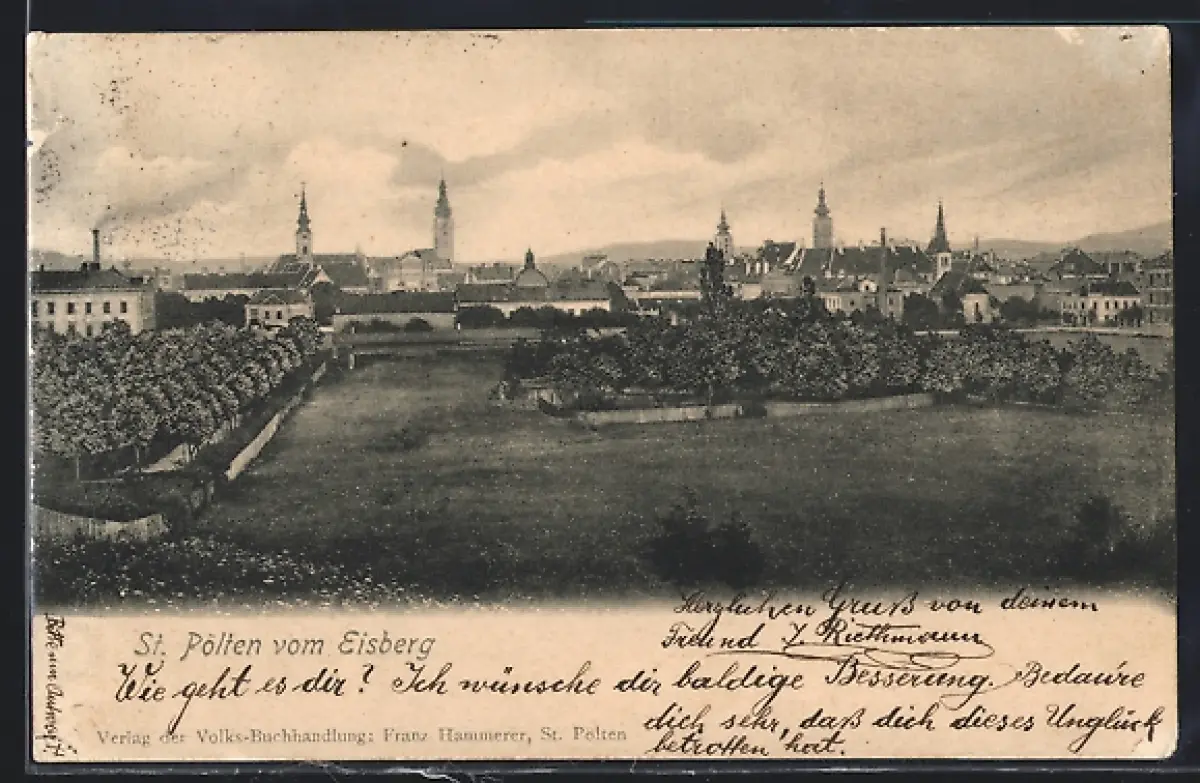 St. Pölten vom Eisberg
Herzlichen Gruß von deinem
Freund J. Riethmann
Wie geht es dir? Ich wünsche dir baldige Besserung. Bedaure
dich sehr, daß dich dieses Unglück
betroffen hat.
Verlag der Volks-Buchhandlung: Franz Hammerer, St. Pölten
Bitte um Antwort